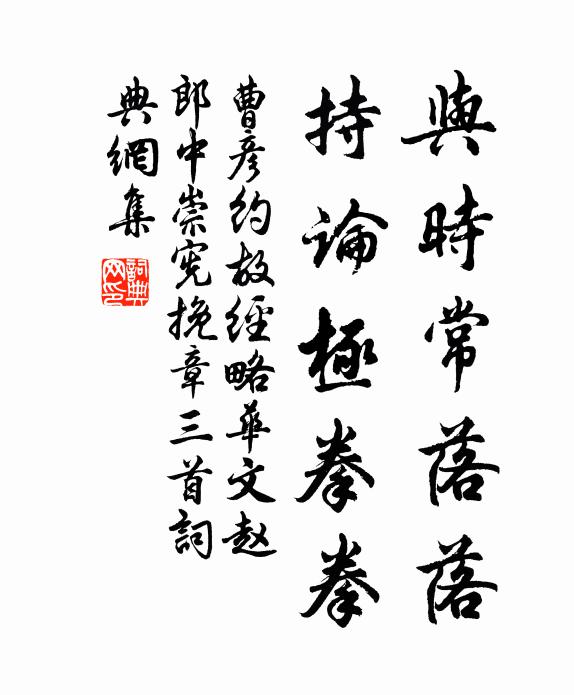 與時常落落
持論極拳拳
曹彦約故經略華文赵
郎中崇宪挽章三首詞
典網集
詞典
网印